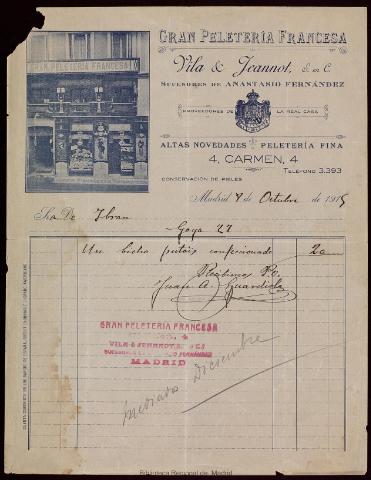 GRAN PELETERÍA FRANCESA
GRAN PELETERÍA FRANCESA
Vila & Jeannot, S. en C.
SUCESORES DE ANASTASIO FERNÁNDEZ
PROVEEDORES DE LA REAL CASA
ALTAS NOVEDADES PELETERÍA FINA
4, CARMEN, 4
TELÉFONO 3.393
CONSERVACIÓN DE PIELES
Madrid 9 de Octubre de 1915
Sra De Ibran
Goya 27
Un bicho putois confeccionado 20
Recibimos P.O.
Juan A. Guardiola
GRAN PELETERIA FRANCESA
4
VILA & JEANNOT, S. en C.
MADRID
mediados Diciembre
Biblioteca Regional de Madrid